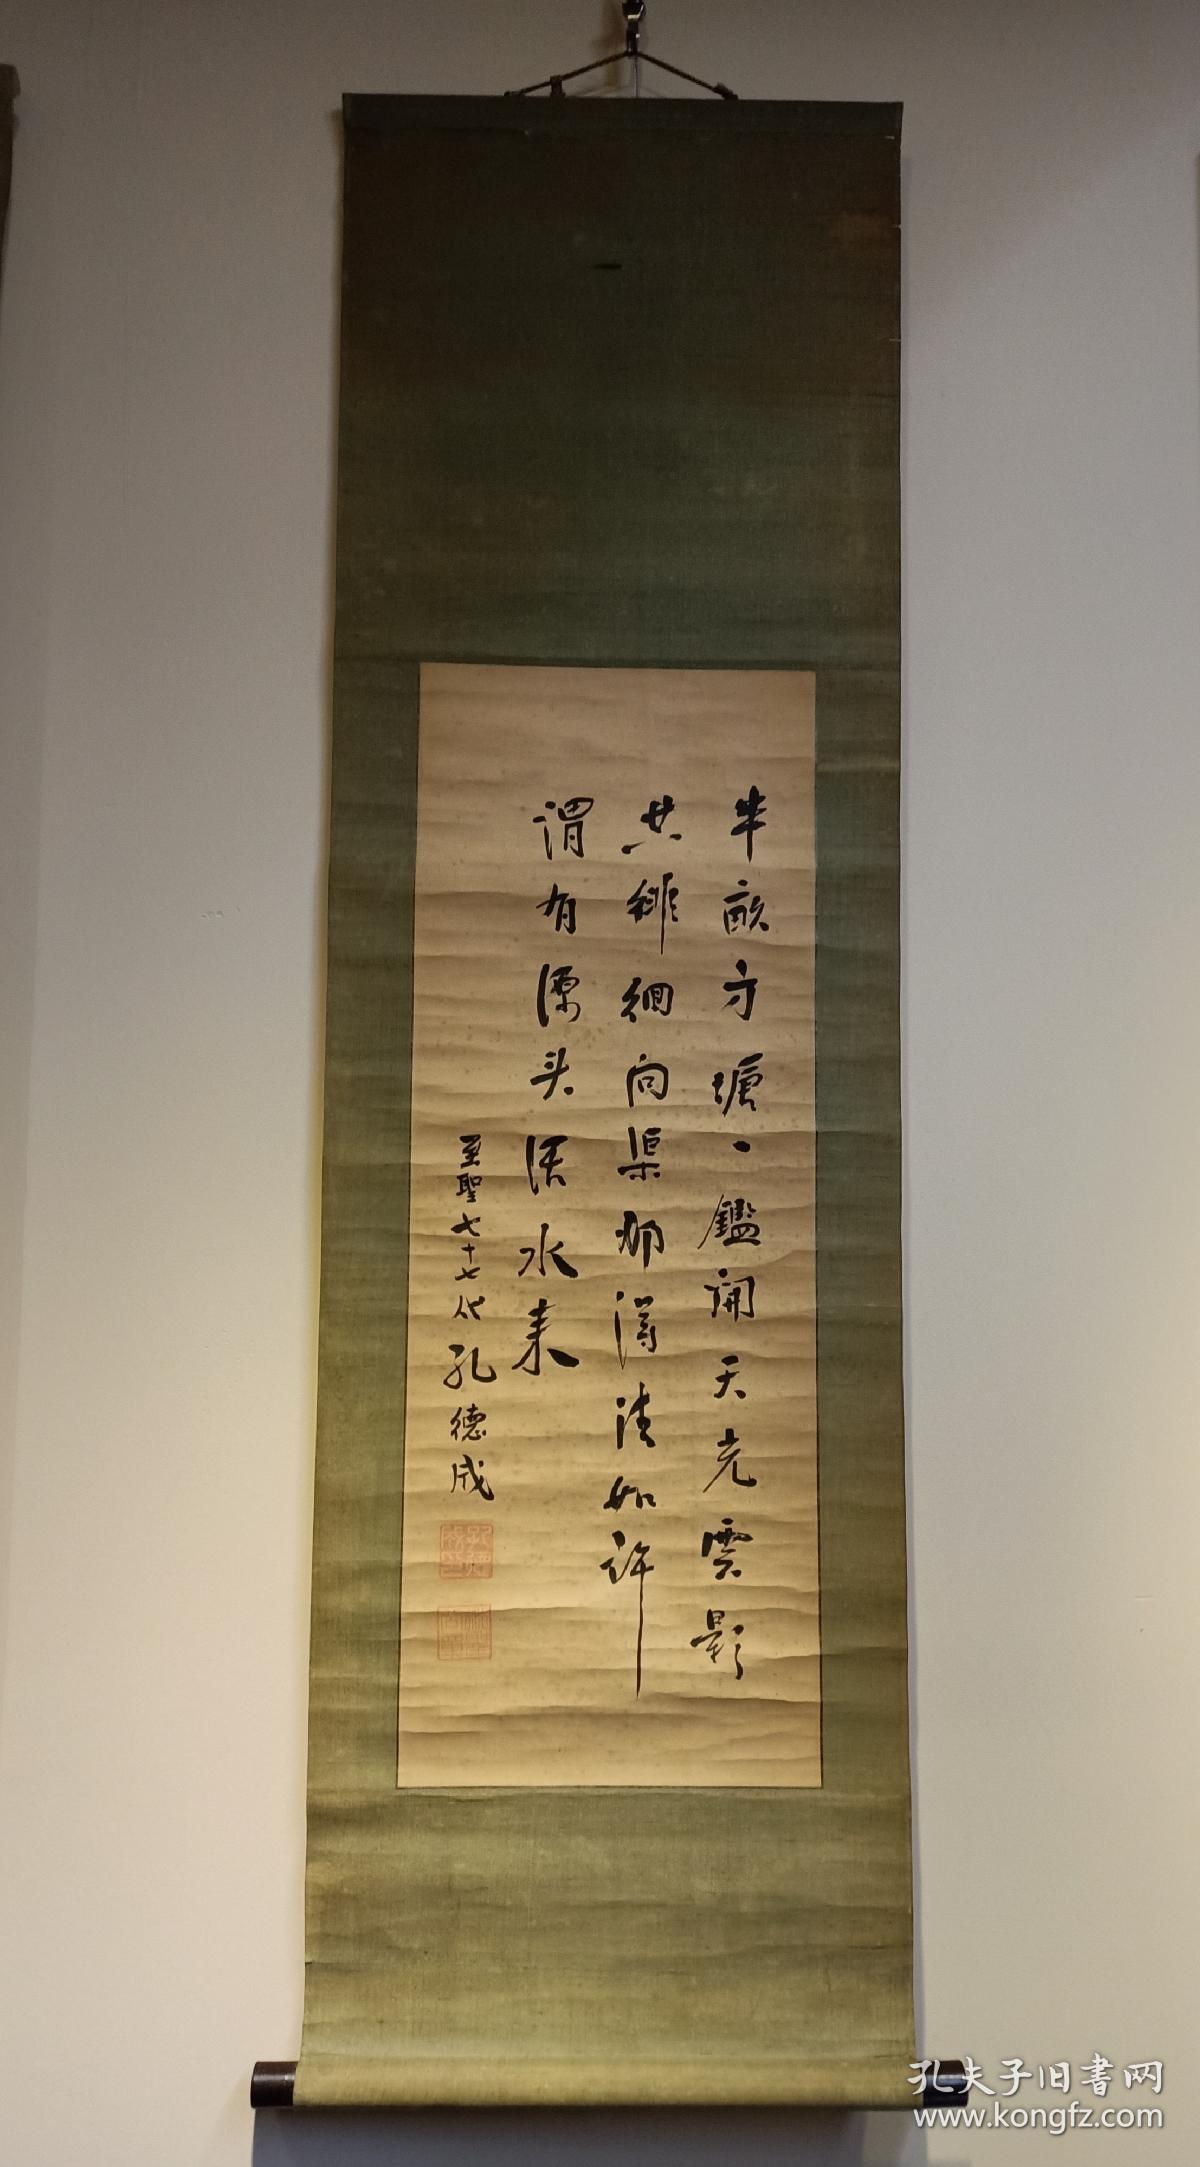 半畝方塘一鑑開天光雲影
共徘徊問渠那得清如許
謂有源头活水来
至聖七十七代孔德成
孔德成印
孔夫子旧書网
www.kongfz.com